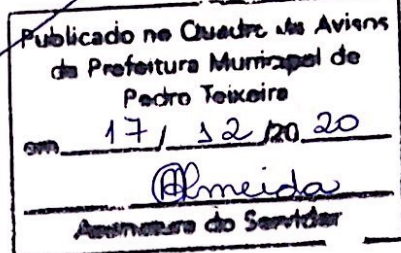 Publicado no Quadro de Avisos
da Prefeitura Municipal de
Pedro Teixeira
em 17/12/2020
Almeida
Assinatura do Servidor